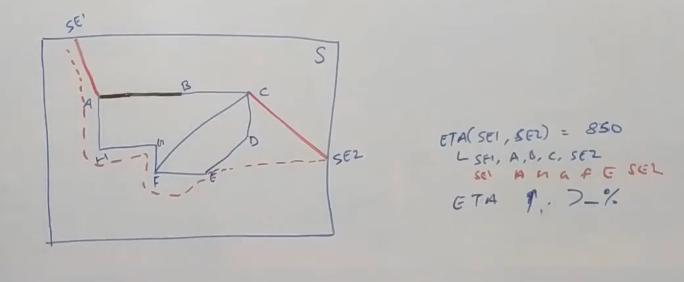 SE1
S
A
B
C
G
D
F
E
SE2
ETA(SE1, SE2) = 850
SE1, A, B, C, SE2
SE1 A H G F E SE2
ETA